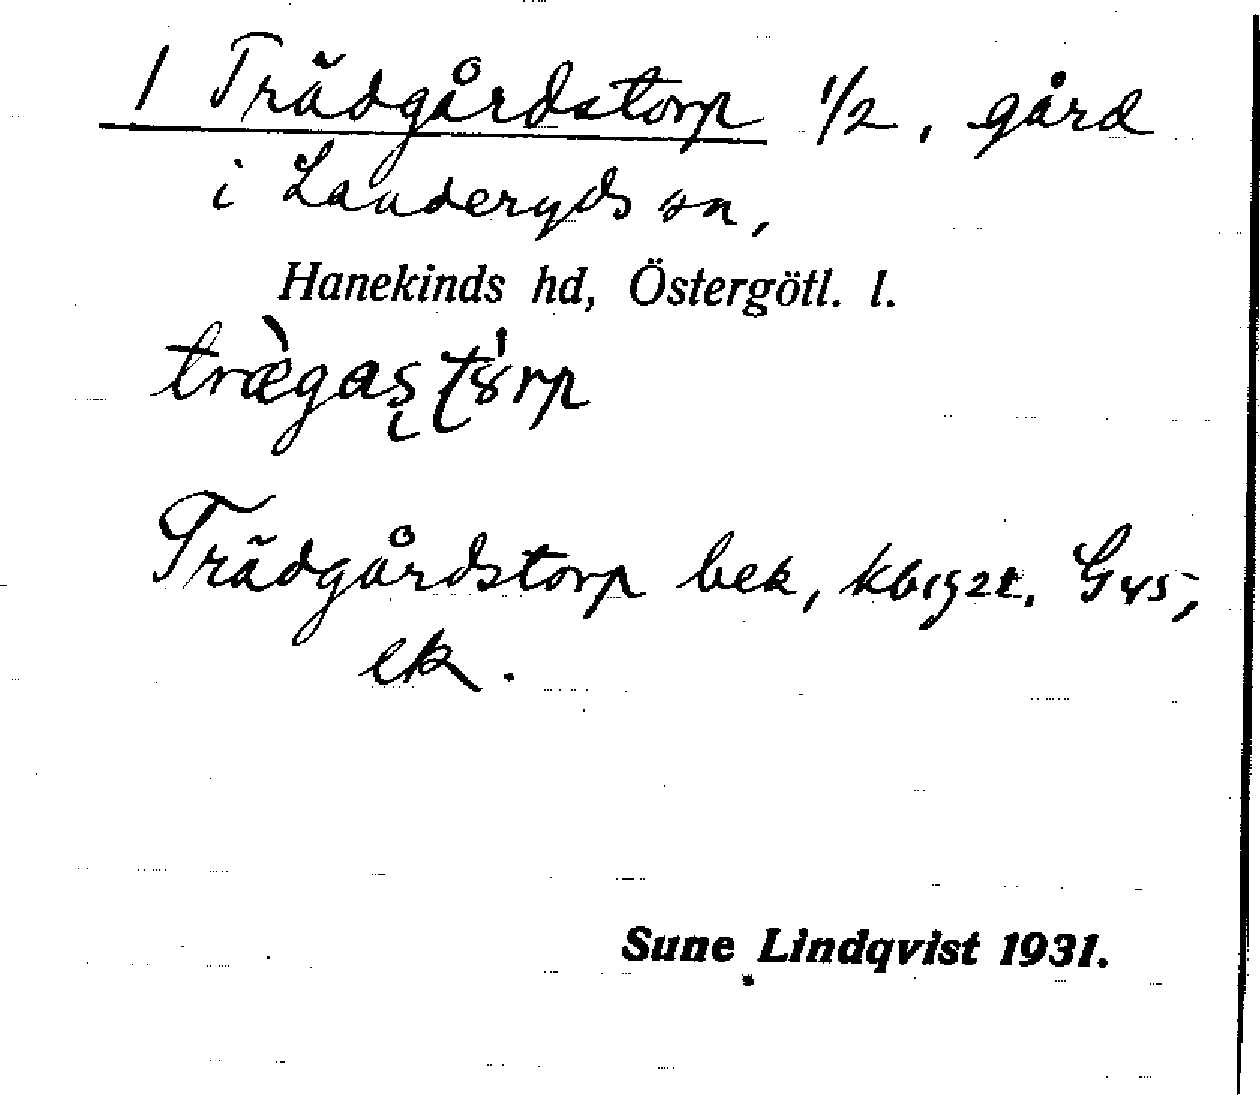 1 Trädgårdstorp 1/2, gård
i Landeryds sn,
Hanekinds hd, Östergötl. l.
trægas törp
Trädgårdstorp bek, kb 1921. G45,
ek.
Sune Lindqvist 1931.